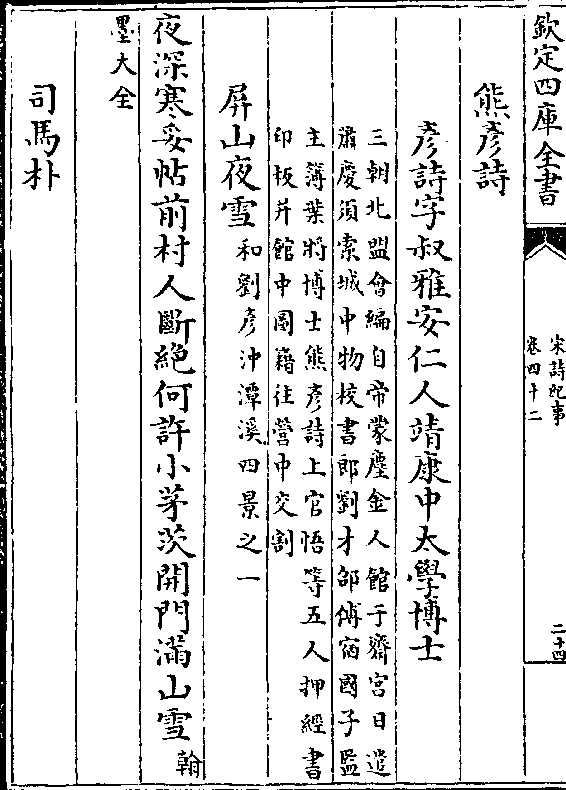 欽定四庫全書
宋詩紀事
卷四十二
二十四
熊彥詩
彥詩字叔雅安仁人靖康中太學博士
三朝北盟會編自帝蒙塵金人館于齋宫日遣
蕭慶須索城中物校書郎劉才邵傅宿國子監
主簿葉將博士熊彥詩上官悟等五人押經書
印板并館中圖籍往營中交割
屏山夜雪和劉彥沖潭溪四景之一
夜深寒妥帖前村人斷絶何許小茅茨開門滿山雪翰
墨大全
司馬朴